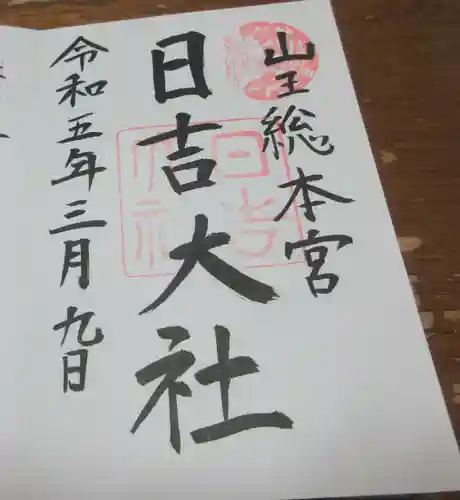 山王総本宮
日吉大社
令和五年三月九日
日吉大社